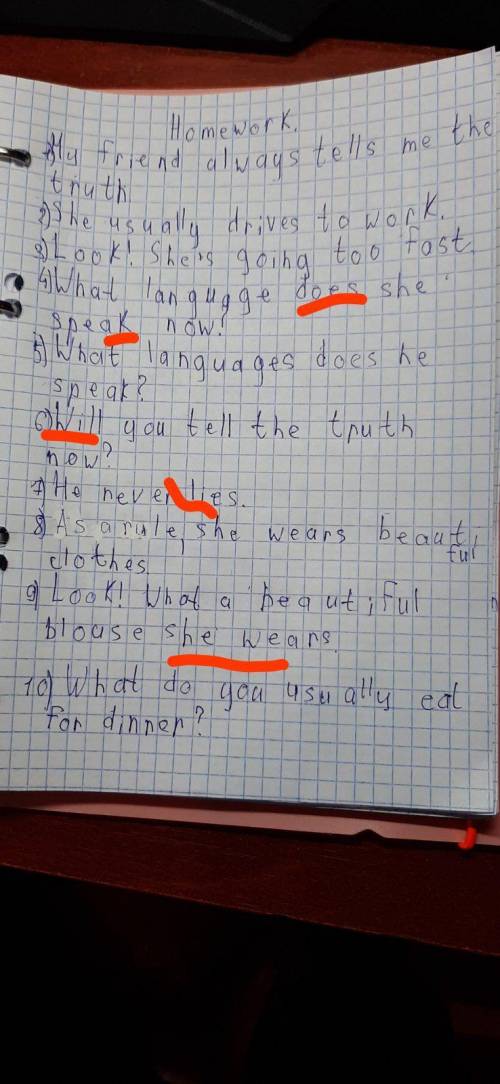 Homework.
1) My friend always tells me the
truth
2) She usually drives to work.
3) Look! She's going too fast.
4) What language does she
speak now?
5) What languages does he
speak?
6) Will you tell the truth
now?
7) He never lies.
8) As a rule, she wears beauti
ful
clothes.
9) Look! What a beautiful
blouse she wears.
10) What do you usually eat
for dinner?